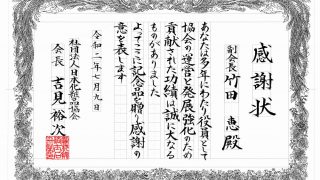 感謝状
副会長 竹田 恵 殿
あなたは多年にわたり役員として
協会の運営と発展強化のため
貢献された功績は誠に大なる
ものがありました
よってここに記念品を贈り感謝の
意を表します
令和二年七月九日
社団法人日本化粧品協会
会長 吉見 裕次